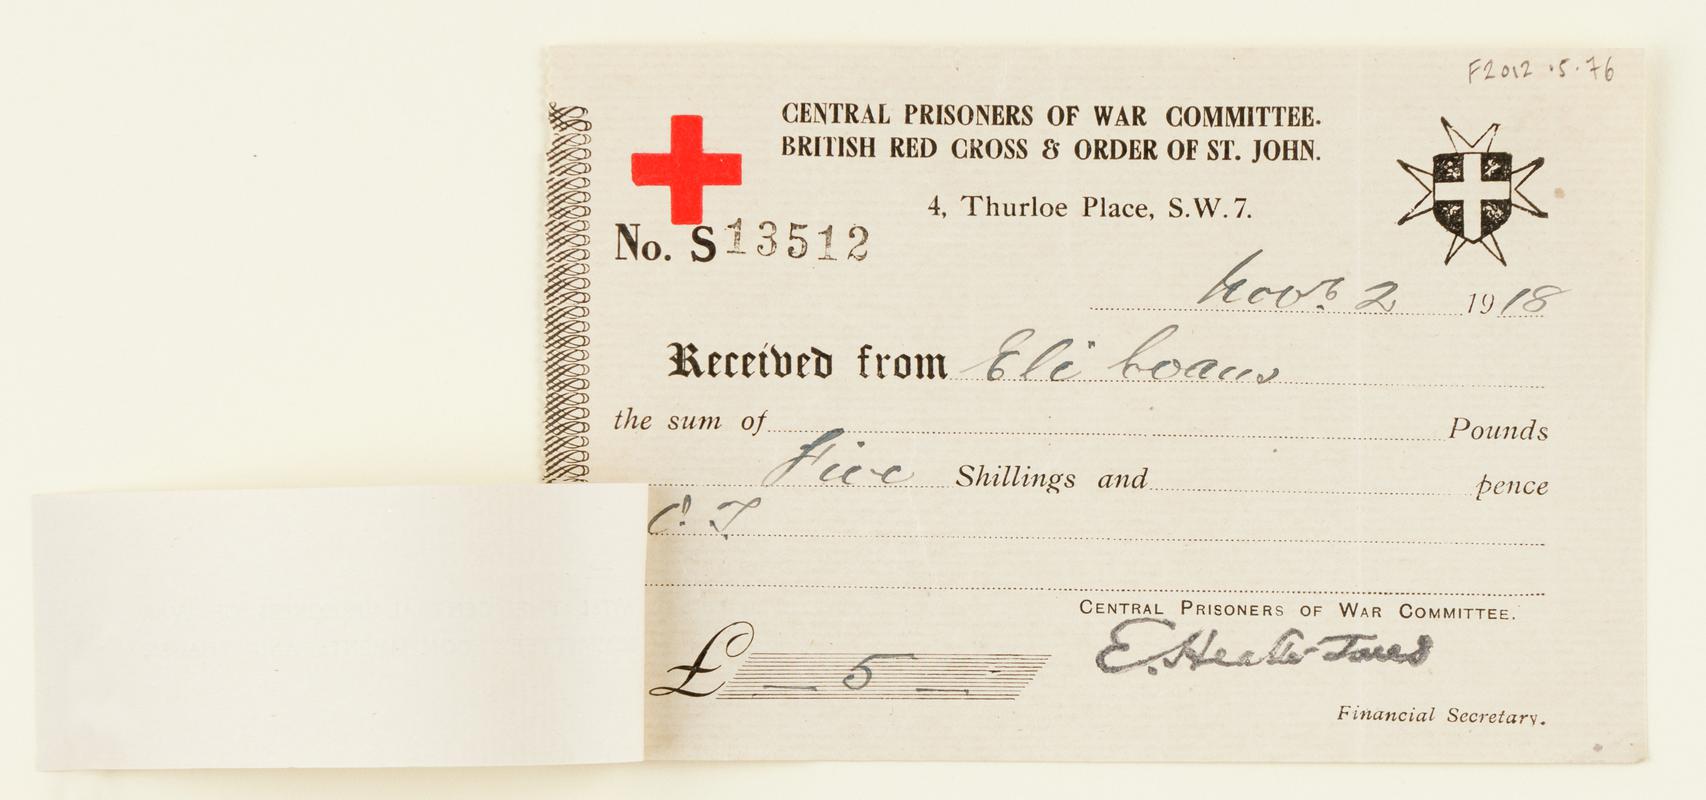 F2012.5.76
CENTRAL PRISONERS OF WAR COMMITTEE.
BRITISH RED CROSS & ORDER OF ST. JOHN.
4, Thurloe Place, S.W.7.
No. S 13512
Novr 2 1918
Received from Eli Evans
the sum of Pounds
Five Shillings and pence
C. T
CENTRAL PRISONERS OF WAR COMMITTEE.
£ — 5 —
E. Heath-Jones
Financial Secretary.